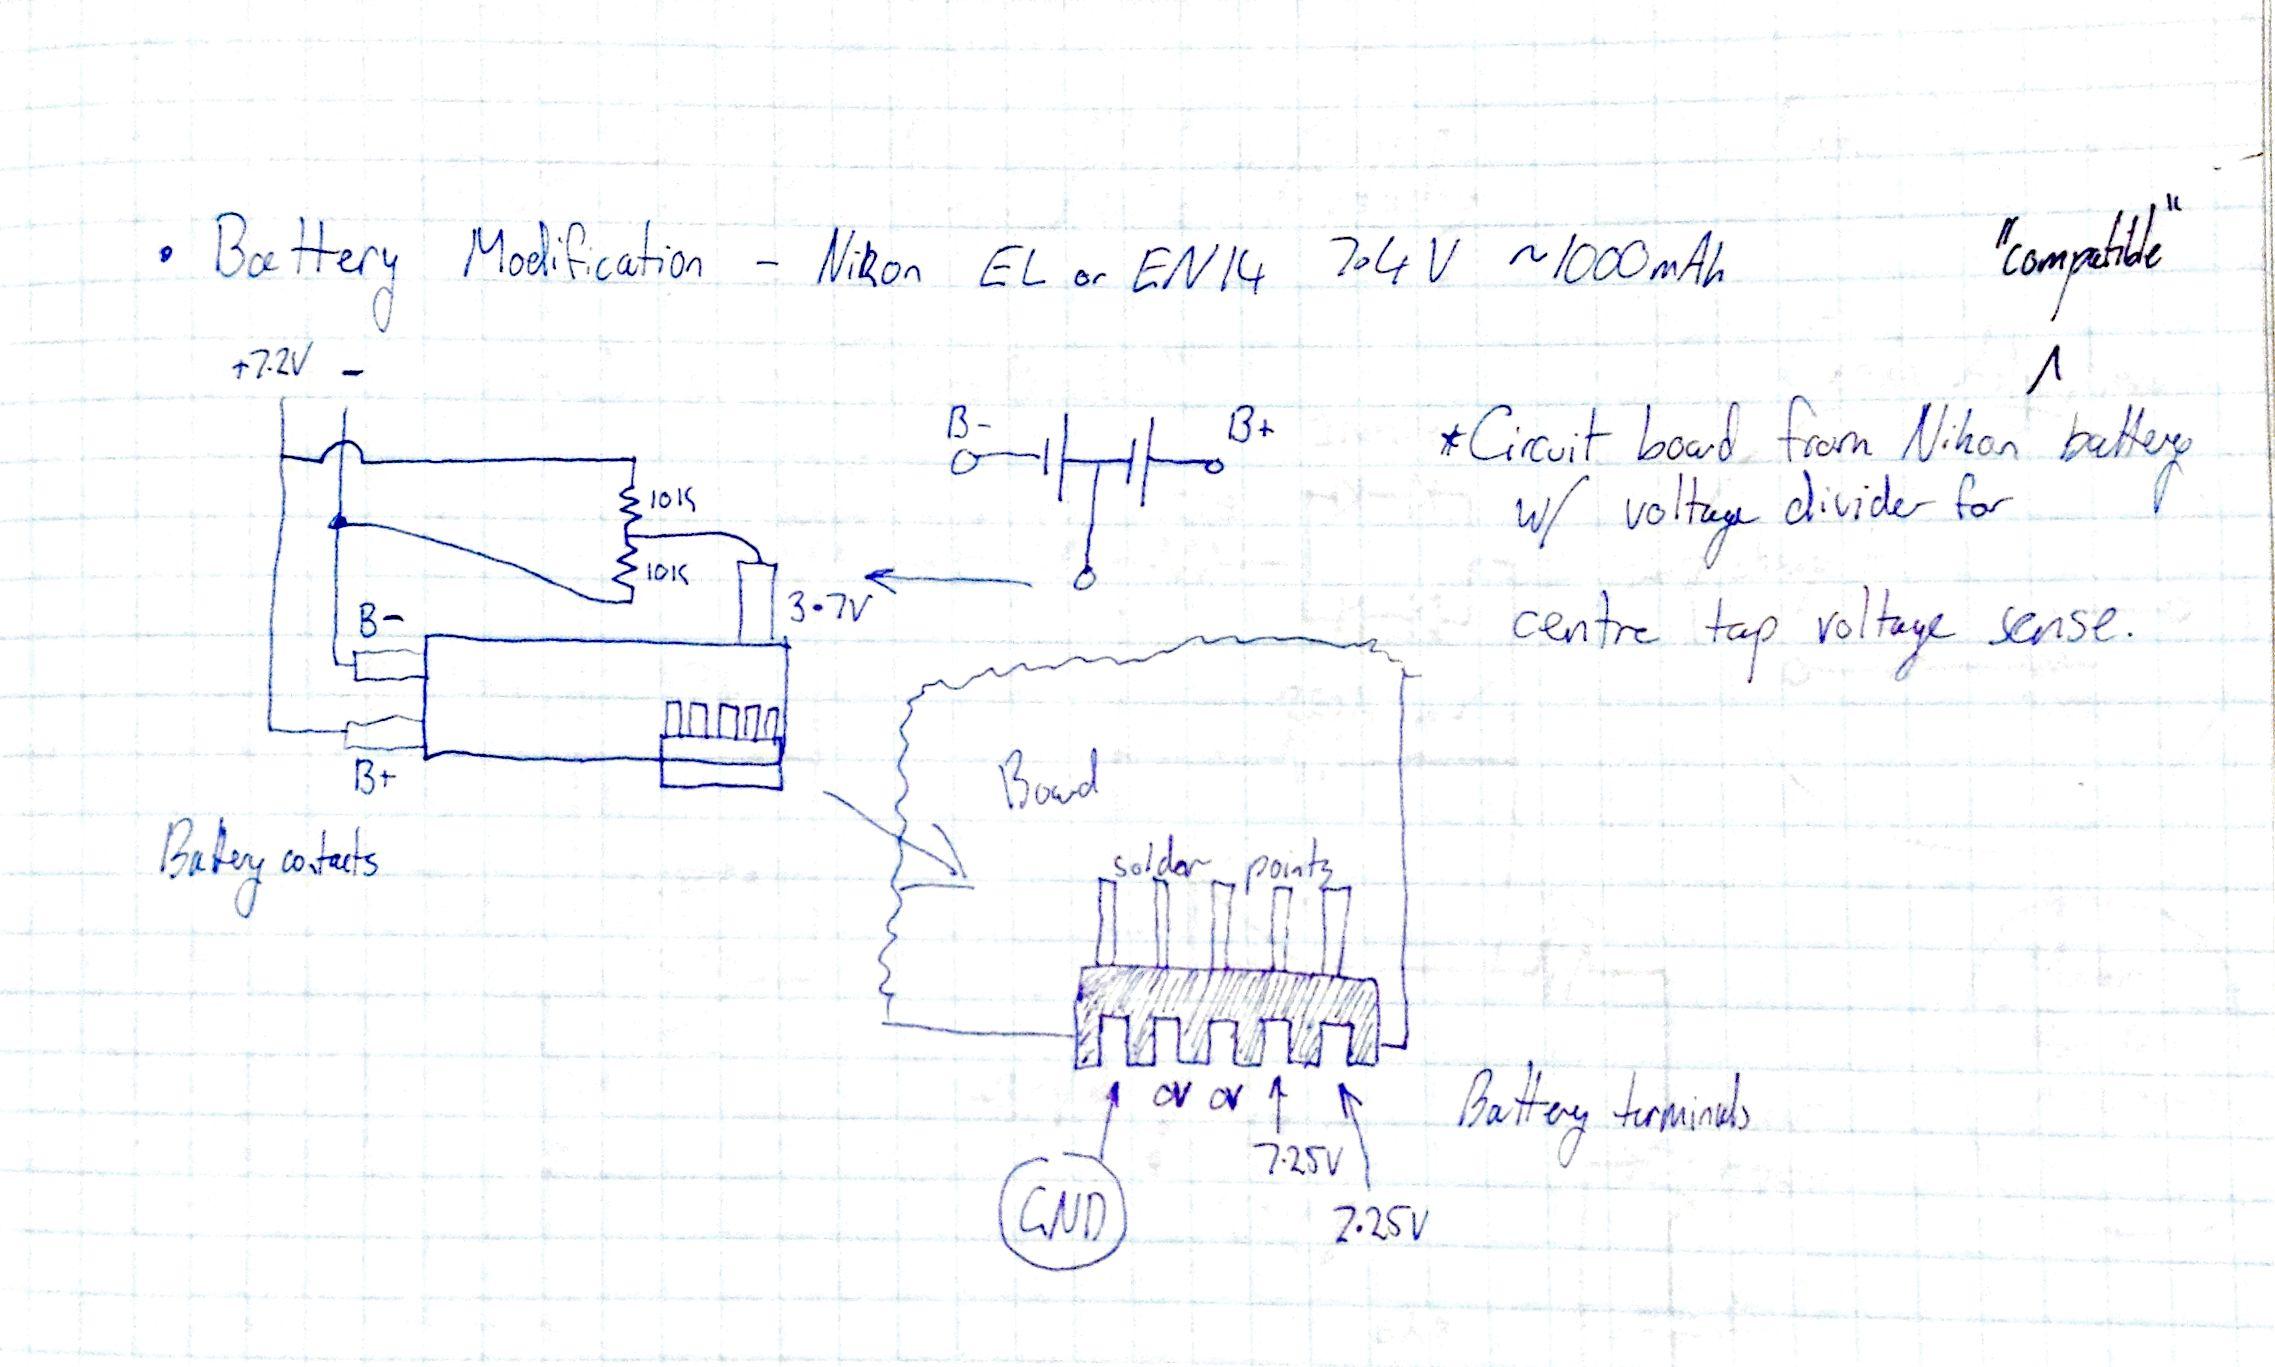 • Battery Modification - Nikon EL or EN14 7.4V ~1000mAh
"compatible"
+7.2V -
B- B+
*Circuit board from Nikon ^ battery
w/ voltage divider for
centre tap voltage sense.
10K
10K
3.7V
B-
B+
Battery contacts
Board
solder points
0V 0V
7.25V
GND
7.25V
Battery terminals